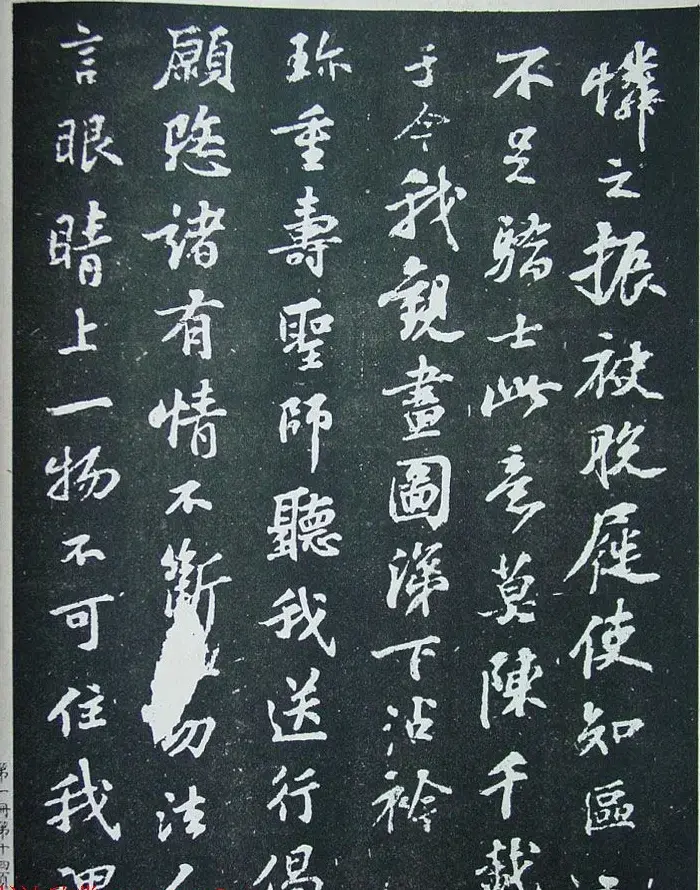 憐之振被脫屣使知區
不足驕士此意莫陳千載
于今我觀畫圖涕下沾衿
珎重壽聖師聽我送行偈
願愍諸有情不斷勿法人
言眼睛上一物不可住我謂
第一冊第十四頁